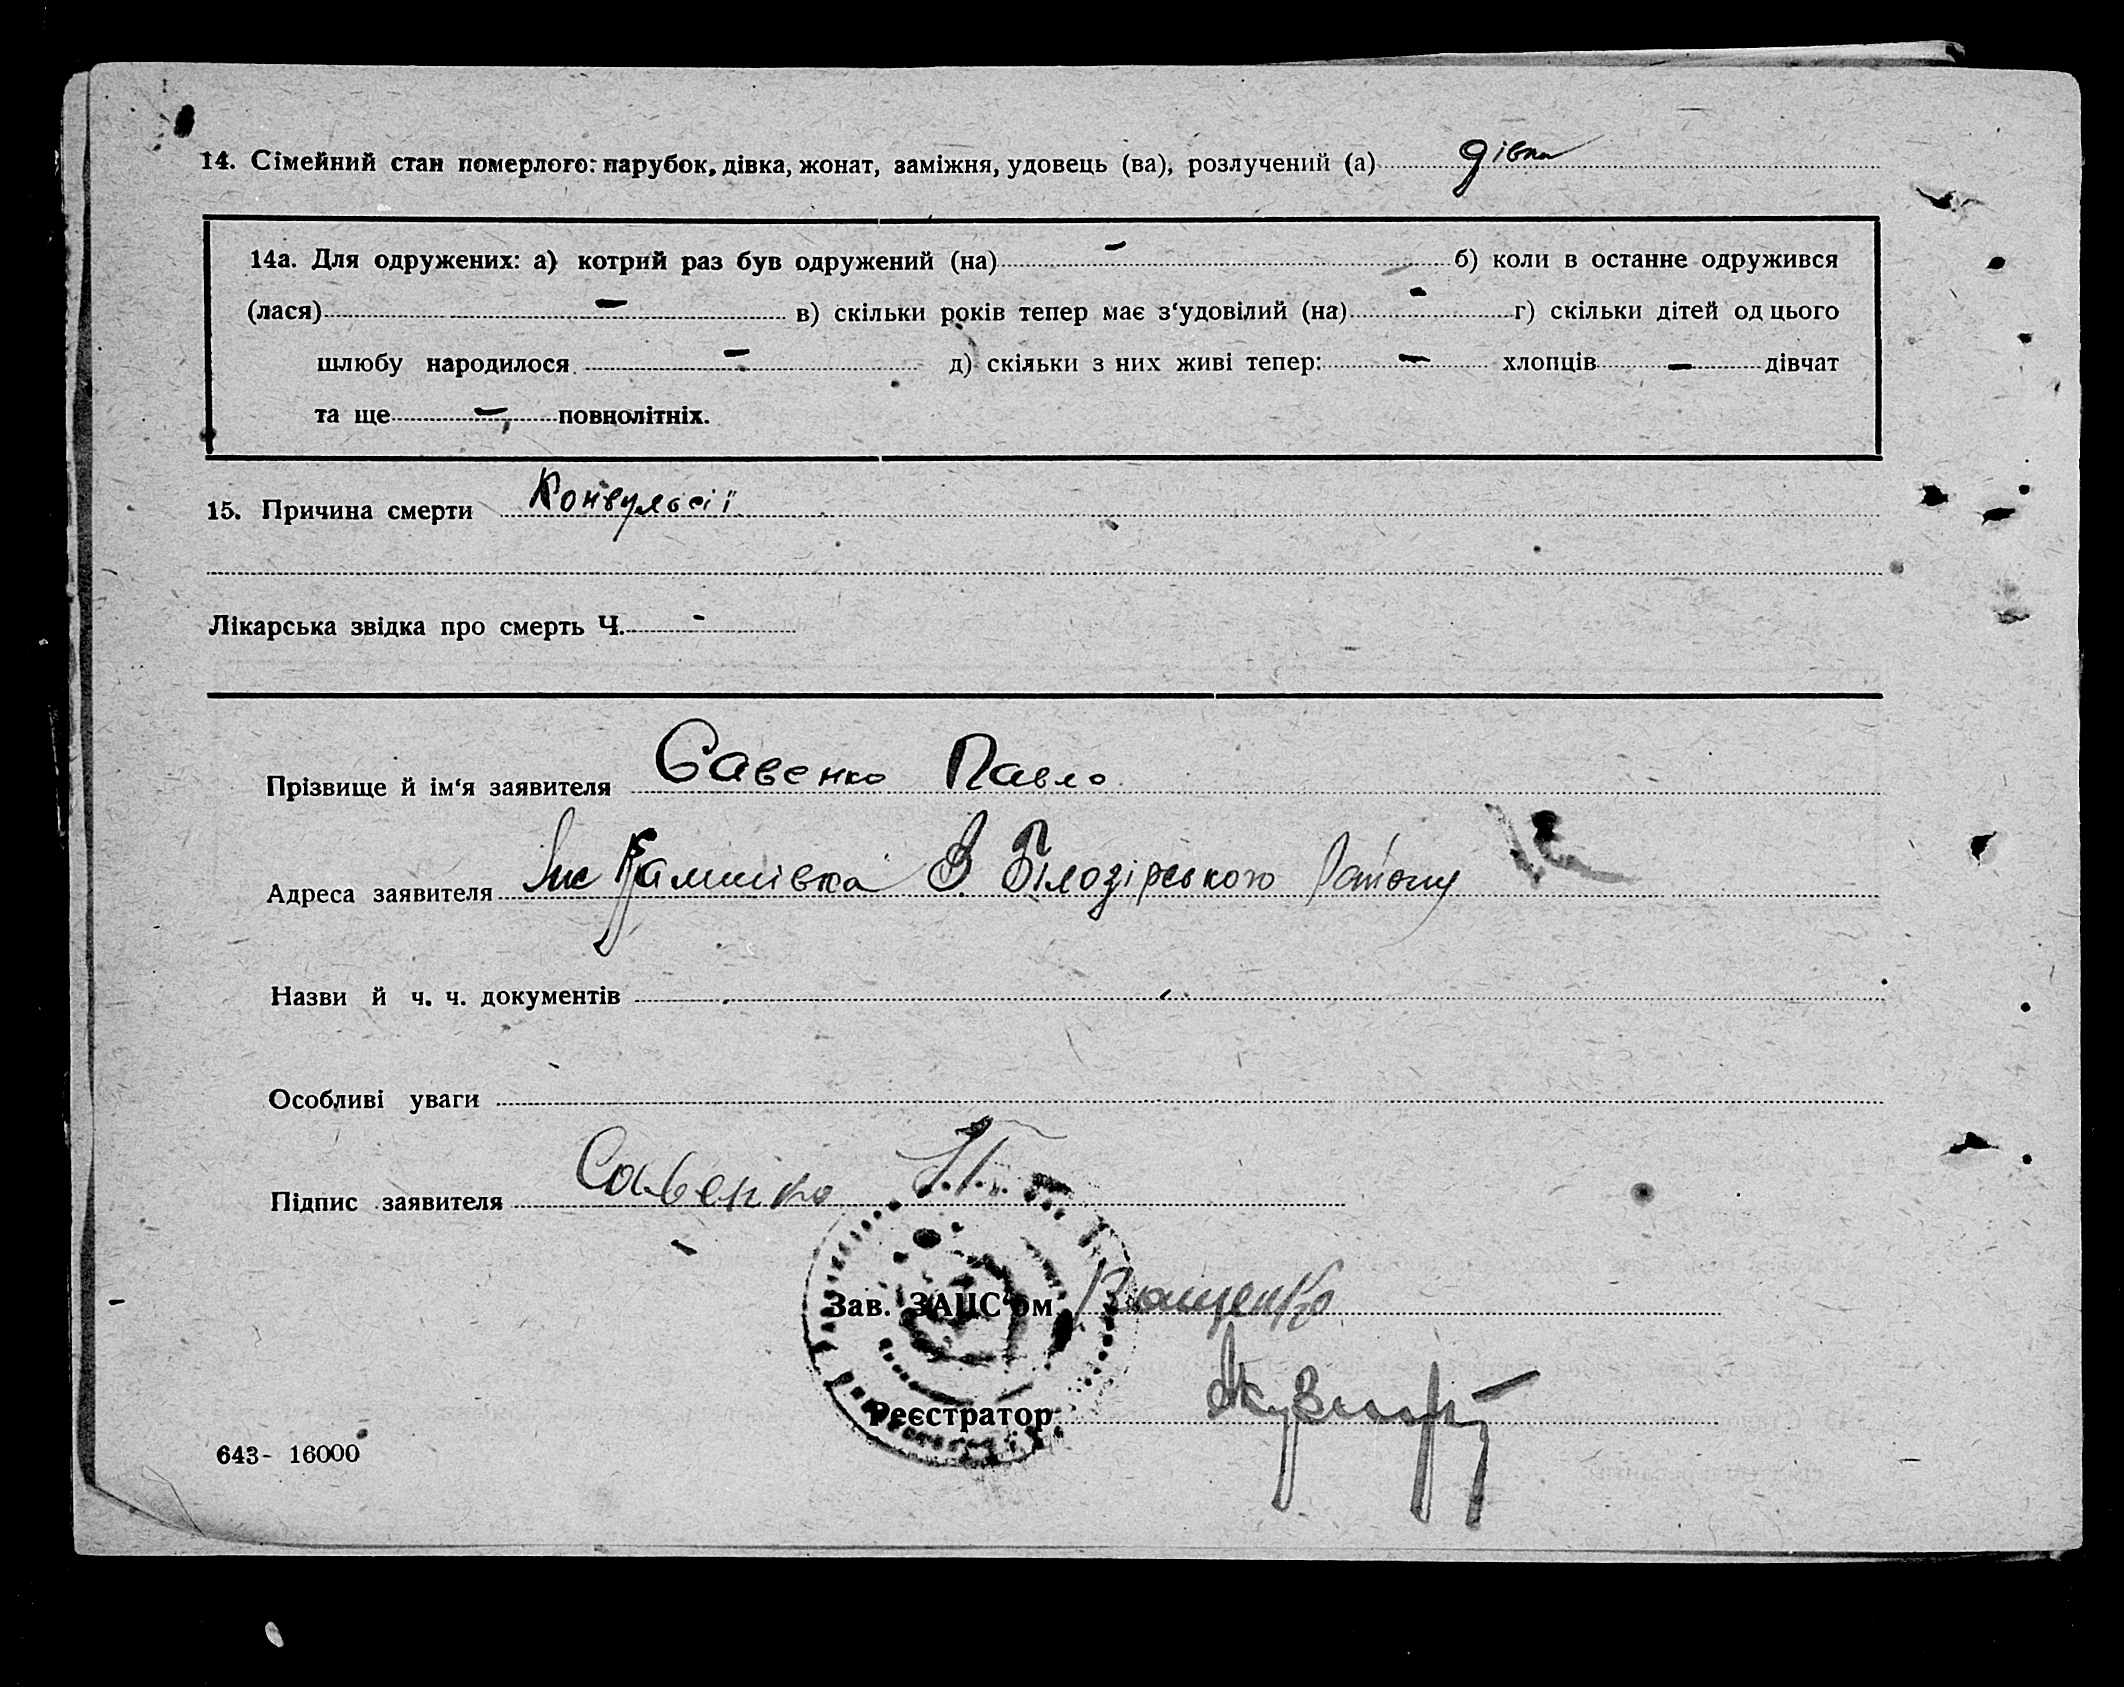 14. Сімейний стан померлого: парубок, дівка, жонат, заміжня, удовець (ва), розлучений (а) дівка
14а. Для одружених: а) котрий раз був одружений (на) – б) коли в останнє одружився
(лася) – в) скільки років тепер має з‘удовілий (на) – г) скільки дітей од цього
шлюбу народилося – д) скільки з них живі тепер: – хлопців – дівчат
та ще – повнолітніх.
15. Причина смерти Конвульсії
Лікарська звідка про смерть Ч. –
Прізвище й ім‘я заявителя Савенко Павло
Адреса заявителя Білозірського Району
Назви й ч. ч. документів
Особливі уваги
Підпис заявителя Савенко
Зав. ЗАПС‘ом Ващенко
Реєстратор
643- 16000